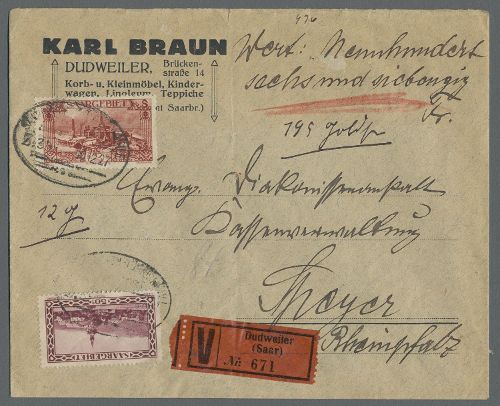 976
KARL BRAUN
DUDWEILER, Brücken-
straße 14
Korb- u. Kleinmöbel, Kinder-
wagen, Linoleum, Teppiche
Saarbr.)
Wert: Neunhundert
sechs und siebenzig
Fr.
195 Goldfr
SAARGEBIET
Evang. Diakonissenanstalt
12 g
Kassenverwaltung
Speyer
Rheinpfalz
SAARGEBIET
V
Dudweiler
(Saar)
№ 671